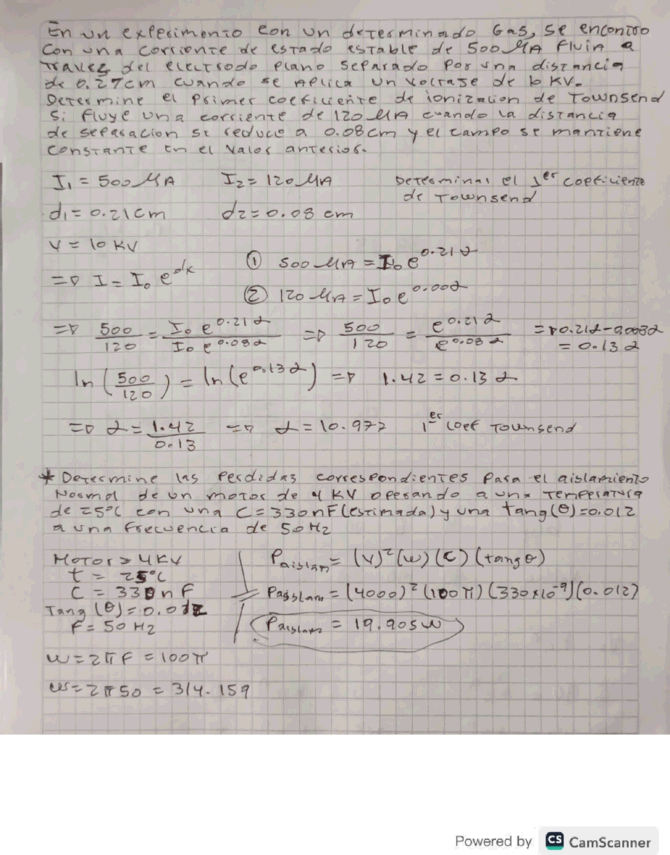 En un experimento con un determinado Gas, se encontro
Con una corriente de estado estable de 500 μA Fluia a
traves del electrodo plano separado Por una distancia
de 0.27cm cuando se Aplica un voltase de 10 KV.
Determine el Primer coeficiente de ionizacion de Townsend
Si fluye una corriente de 120 μA cuando la distancia
de separacion se reduce a 0.08cm y el campo se mantiene
constante en el valor anterior.
I₁ = 500 μA I₂ = 120 μA Determinar el 1er coeficiente
de Townsend
d₁ = 0.21cm d₂ = 0.08 cm
V = 10 KV
① 500 μA = I₀ e^0.21α
⇒ I = I₀ e^αx
② 120 μA = I₀ e^0.08α
⇒ 500/120 = I₀ e^0.21α / I₀ e^0.08α ⇒ 500/120 = e^0.21α / e^0.08α ⇒ 0.21α - 0.08α
= 0.13 α
ln (500/120) = ln (e^0.13α) ⇒ 1.42 = 0.13 α
⇒ α = 1.42/0.13 ⇒ α = 10.977 1er coef Townsend
* Determine las perdidas correspondientes para el aislamiento
Normal de un motor de 4 KV operando a una temperatura
de 25°C con una C = 330nF (estimada) y una tang(θ)=0.012
a una frecuencia de 50 Hz
Motor > 4KV
Paislam = (V)² (w) (C) (tangθ)
t = 25°C
C = 330 n F
Paislam = (4000)² (100 π) (330 x10⁻⁹) (0.012)
Tang (θ) = 0.012
F = 50 Hz
Paislam = 19.905 w
w = 2πF = 100π
w = 2π50 = 314.159
Powered by CS CamScanner